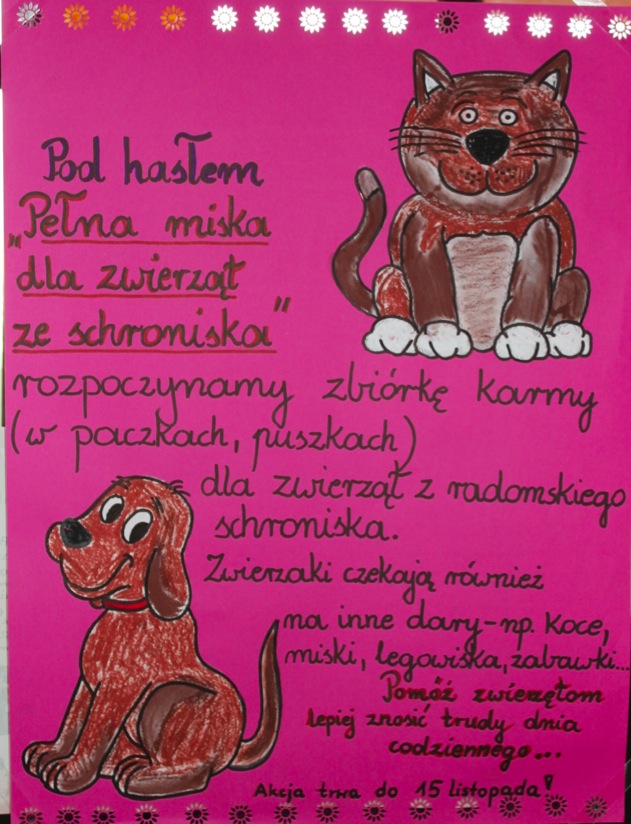 Pod hasłem
„Pełna miska
dla zwierząt
ze schroniska"
rozpoczynamy zbiórkę karmy
(w paczkach, puszkach)
dla zwierząt z radomskiego
schroniska.
Zwierzaki czekają również
na inne dary-np. koce,
miski, legowiska, zabawki...
Pomóż zwierzętom
lepiej znosić trudy dnia
codziennego...
Akcja trwa do 15 listopada!